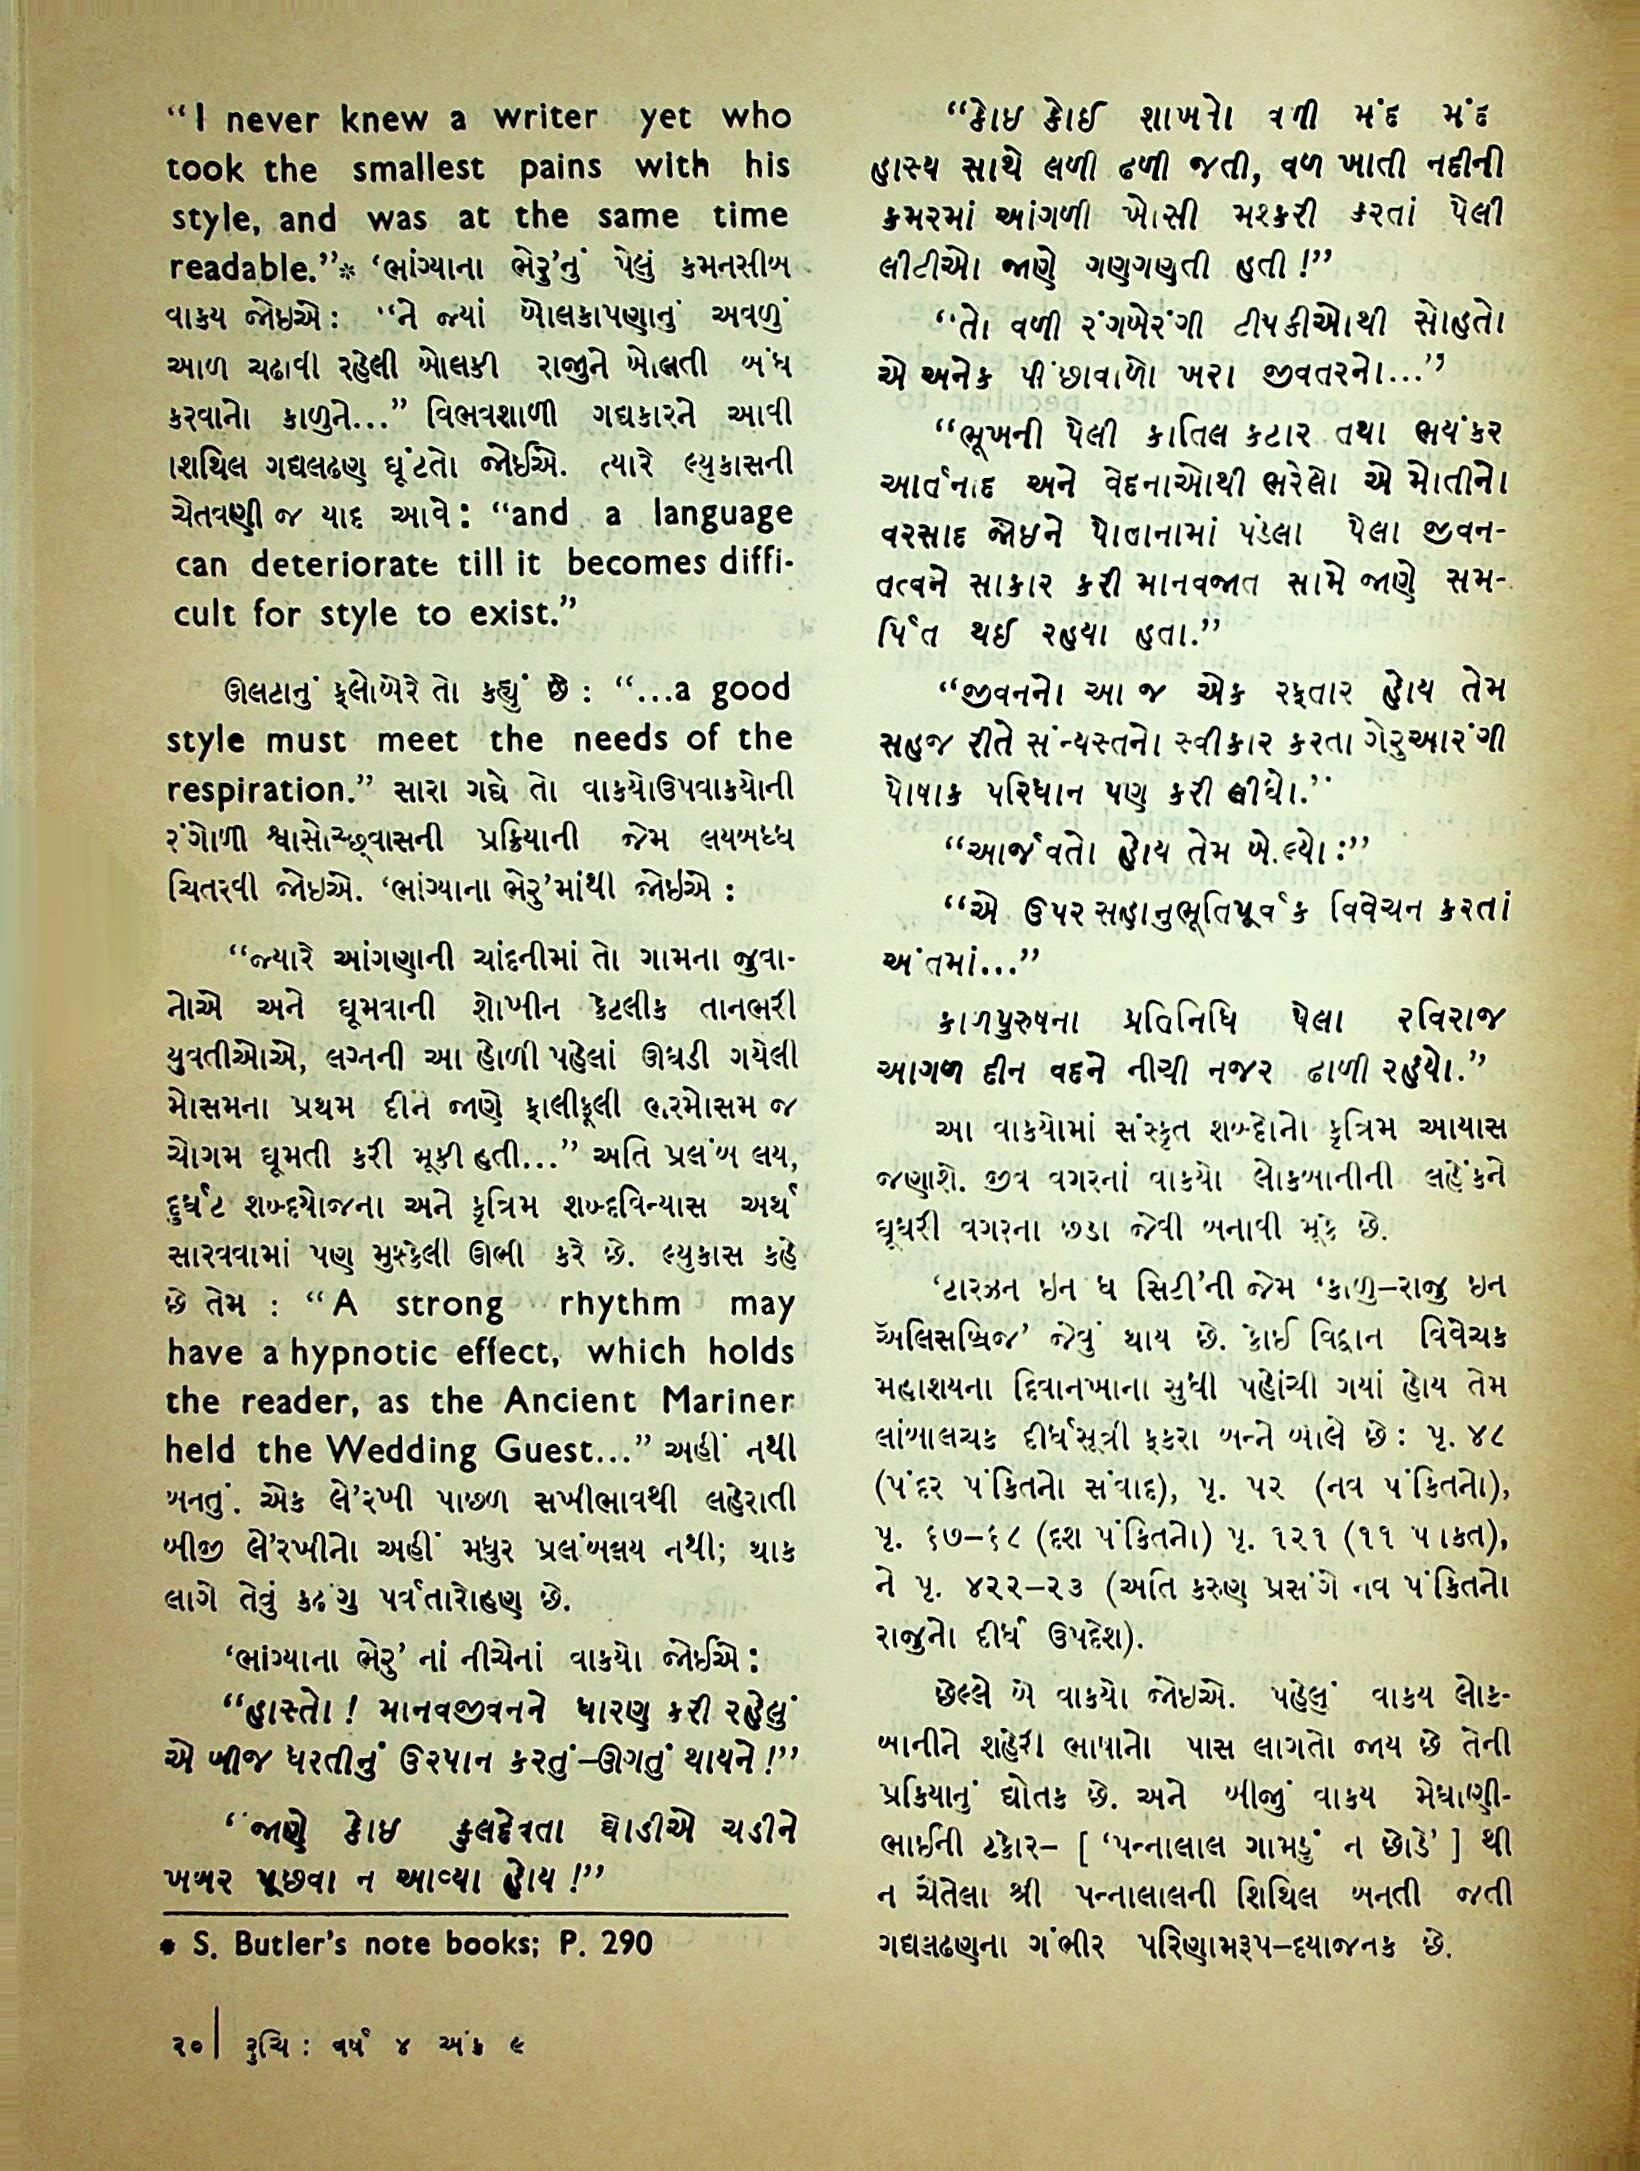 “I never knew a writer yet who
took the smallest pains with his
style, and was at the same time
readable.”* ‘ભાંગ્યાના ભેરુ’નું પેલું કમનસીબ
વાક્ય જોઇએ: “ને જ્યાં બોલકાપણાનું અવળું
આળ ચઢાવી રહેલી બોલકી રાજીને બોલતી બંધ
કરવાનો કાળુને...” વિભવશાળી ગદ્યકારને આવી
શિથિલ ગદ્યલઢણ ઘૂંટતો જોઈએ. ત્યારે લ્યુકાસની
ચેતવણી જ યાદ આવે: “and a language
can deteriorate till it becomes diffi-
cult for style to exist.”
ઊલટાનું ફ્લોબેરે તો કહ્યું છે: “...a good
style must meet the needs of the
respiration.” સારા ગદ્યે તો વાક્યોઉપવાક્યોની
રંગોળી શ્વાસોચ્છ્વાસની પ્રક્રિયાની જેમ લયબધ્ધ
ચિતરવી જોઇએ. ‘ભાંગ્યાના ભેરુ’માંથી જોઇએ:
“જ્યારે આંગણાની ચાંદનીમાં તો ગામના જુવા-
નોએ અને ઘૂમવાની શોખીન કેટલીક તાનભરી
યુવતીઓએ, લગ્નની આ હોળી પહેલાં ઊઘડી ગયેલી
મોસમના પ્રથમ દીને જાણે ફાલીફૂલી ભરમોસમ જ
ચોગમ ઘૂમતી કરી મૂકી હતી...” અતિ પ્રલંબ લય,
દુર્ઘટ શબ્દયોજના અને કૃત્રિમ શબ્દવિન્યાસ અર્થ
સારવવામાં પણ મુશ્કેલી ઊભી કરે છે. લ્યુકાસ કહે
છે તેમ : “A strong rhythm may
have a hypnotic effect, which holds
the reader, as the Ancient Mariner
held the Wedding Guest...” અહીં નથી
બનતું. એક લે’રખી પાછળ સખીભાવથી લહેરાતી
બીજી લે’રખીનો અહીં મધુર પ્રલંબલય નથી; થાક
લાગે તેવું કઢંગુ પર્વતારોહણ છે.
‘ભાંગ્યાના ભેરુ’ નાં નીચેનાં વાક્યો જોઈએ:
“હાસ્તો! માનવજીવનને ધારણ કરી રહેલું
એ બીજ ધરતીનું ઉરપાન કરતું–ઊગતું થાયને!”
“જાણે કોઇ કુલદેવતા ઘોડીએ ચડીને
ખબર પૂછવા ન આવ્યા હોય!”
* S. Butler’s note books; P. 290
“કોઇ કોઈ શાખતો વળી મંદ મંદ
હાસ્ય સાથે લળી ઢળી જતી, વળ ખાતી નદીની
કમરમાં આંગળી ખોસી મશ્કરી કરતાં પેલી
લીટીઓ જાણે ગણગણતી હતી!”
“તો વળી રંગબેરંગી ટીપકીઓથી સોહતો
એ અનેક પીંછાવાળો ખરા જીવતરનો...”
“ભૂખની પેલી કાતિલ કટાર તથા ભયંકર
આર્તનાદ અને વેદનાઓથી ભરેલો એ મોતીનો
વરસાદ જોઇને પોતાનામાં પડેલા પેલા જીવન-
તત્વને સાકાર કરી માનવજાત સામે જાણે સમ-
ર્પિત થઈ રહયા હતા.”
“જીવનનો આ જ એક રફતાર હોય તેમ
સહજ રીતે સંન્યસ્તનો સ્વીકાર કરતા ગેરુઆરંગી
પોષાક પરિધાન પણ કરી લીધો.”
“આર્જવતો હોય તેમ બોલ્યો:”
“એ ઉપર સહાનુભૂતિપૂર્વક વિવેચન કરતાં
અંતમાં...”
કાળપુરુષના પ્રતિનિધિ પેલા રવિરાજ
આગળ દીન વદને નીચી નજર ઢાળી રહયો.”
આ વાક્યોમાં સંસ્કૃત શબ્દોનો કૃત્રિમ આયાસ
જણાશે. જીવ વગરનાં વાક્યો લોકબાનીની લહેંકને
ઘૂઘરી વગરના છડા જેવી બનાવી મૂકે છે.
‘ટારઝન ઇન ધ સિટી’ની જેમ ‘કાળુ–રાજુ ઇન
ઍલિસબ્રિજ’ જેવું થાય છે. કોઈ વિદ્વાન વિવેચક
મહાશયના દિવાનખાના સુધી પહોંચી ગયાં હોય તેમ
લાંબાલચક દીર્ઘસૂત્રી ફકરા બન્ને બોલે છે: પૃ. ૪૮
(પંદર પંકિતનો સંવાદ), પૃ. ૫૨ (નવ પંકિતનો),
પૃ. ૬૭–૬૮ (દશ પંકિતનો) પૃ. ૧૨૧ (૧૧ પંકિત),
ને પૃ. ૪૨૨–૨૩ (અતિ કરુણ પ્રસંગે નવ પંકિતનો
રાજુનો દીર્ઘ ઉપદેશ).
છેલ્લે બે વાક્યો જોઇએ. પહેલું વાક્ય લોક-
બાનીને શહેરી ભાષાનો પાસ લાગતો જાય છે તેની
પ્રક્રિયાનું દ્યોતક છે. અને બીજું વાક્ય મેઘાણી-
ભાઈની ટકોર– [ ‘પન્નાલાલ ગામડું ન છોડે’ ] થી
ન ચેતેલા શ્રી પન્નાલાલની શિથિલ બનતી જતી
ગદ્યલઢણના ગંભીર પરિણામરૂપ–દયાજનક છે.
૨૦| રુચિ : વર્ષ ૪ અંક ૯